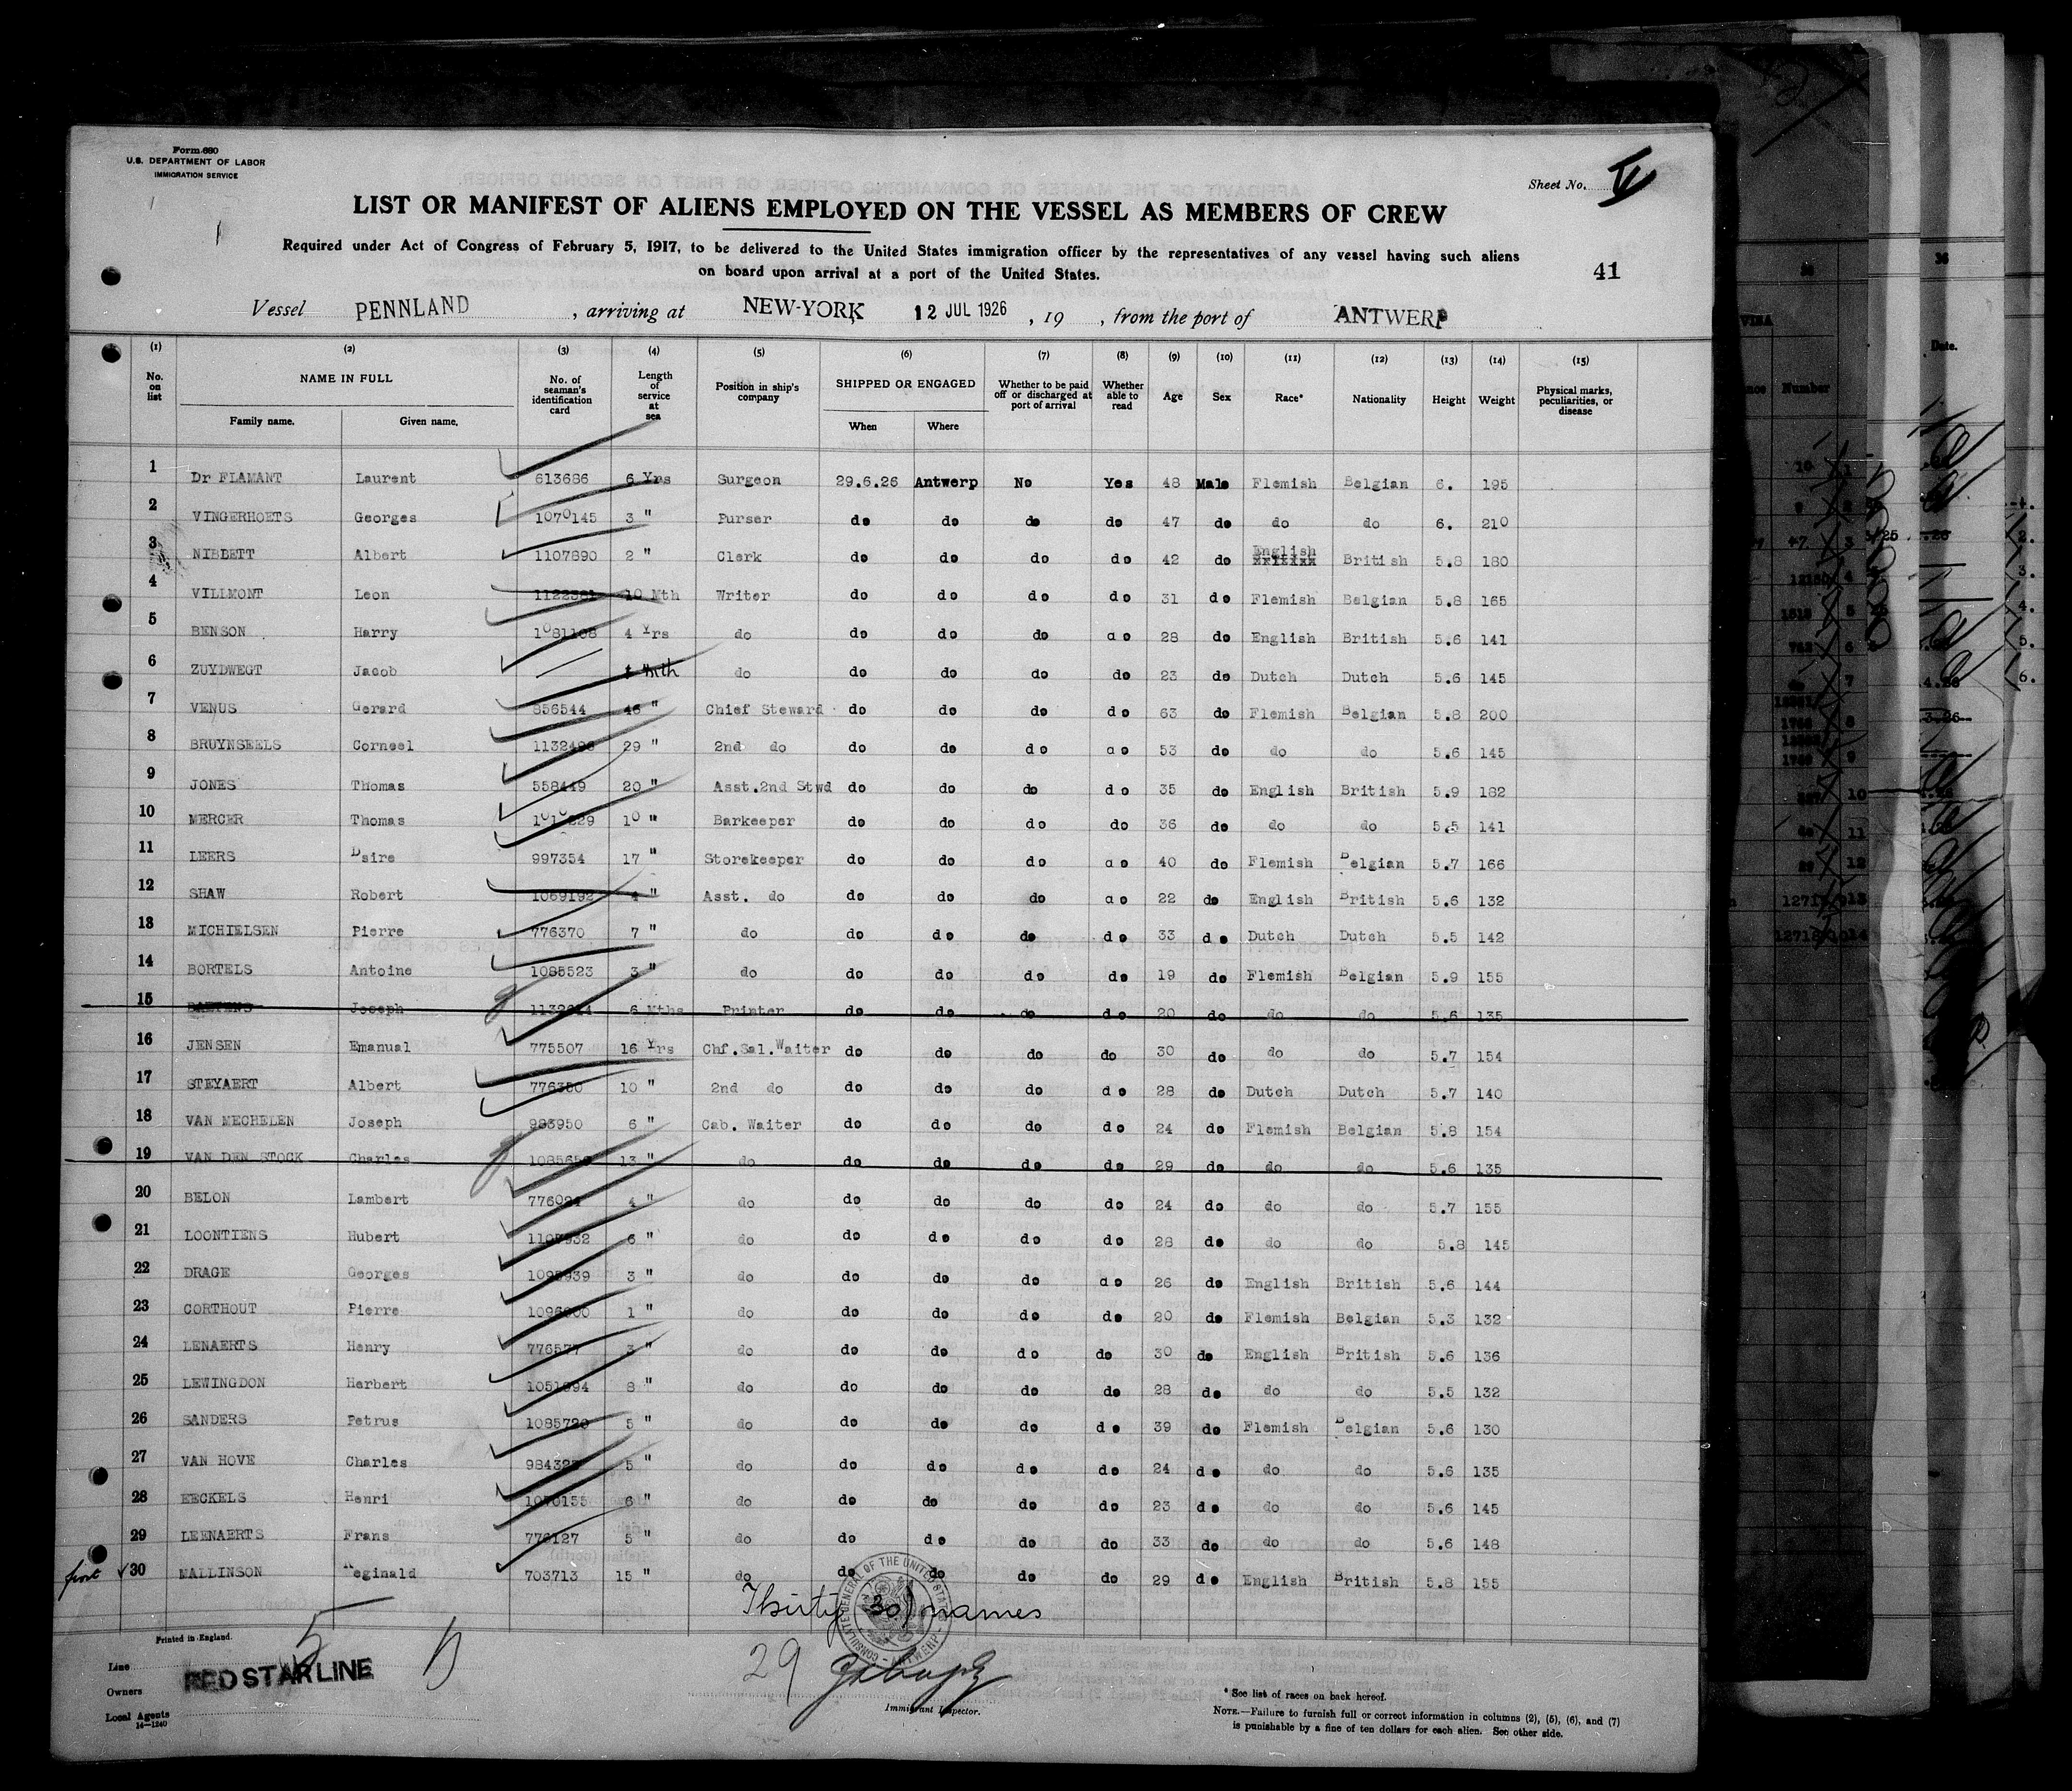 Form 680
U.S. DEPARTMENT OF LABOR
IMMIGRATION SERVICE
Sheet No. IV
LIST OR MANIFEST OF ALIENS EMPLOYED ON THE VESSEL AS MEMBERS OF CREW
Required under Act of Congress of February 5, 1917, to be delivered to the United States immigration officer by the representatives of any vessel having such aliens
on board upon arrival at a port of the United States.
41
Vessel PENNLAND, arriving at NEW-YORK 12 JUL 1926, 19 , from the port of ANTWERP
(1) (2) (3) (4) (5) (6) (7) (8) (9) (10) (11) (12) (13) (14) (15)
No. on list NAME IN FULL Family name. Given name. No. of seaman's identification card Length of service at sea Position in ship's company SHIPPED OR ENGAGED When Where Whether to be paid off or discharged at port of arrival Whether able to read Age Sex Race* Nationality Height Weight Physical marks, peculiarities, or disease
1 Dr FLAMANT Laurent 613686 6 Yrs Surgeon 29.6.26 Antwerp No Yes 48 Male Flemish Belgian 6. 195
2 VINGERHOETS Georges 1070145 3 " Purser do do do do 47 do do do 6. 210
3 NIBLETT Albert 1107690 2 " Clerk do do do do 42 do English British 5.8 180
4 VILLMONT Leon 10 Mth Writer do do do do 31 do Flemish Belgian 5.8 165
5 BENSON Harry 4 Yrs do do do do do 28 do English British 5.6 141
6 ZUYDWEGT Jacob — Mth do do do do do 23 do Dutch Dutch 5.6 145
7 VENUS Gerard 856544 46 " Chief Steward do do do do 63 do Flemish Belgian 5.8 200
8 BRUYNSEELS Corneel 29 " 2nd do do do do do 53 do do do 5.6 145
9 JONES Thomas 558449 20 " Asst.2nd Stwd do do do do 35 do English British 5.9 182
10 MERCER Thomas 10 " Barkeeper do do do do 36 do do do 5.5 141
11 LEERS Dsire 997354 17 " Storekeeper do do do do 40 do Flemish Belgian 5.7 166
12 SHAW Robert 1069192 4 " Asst. do do do do do 22 do English British 5.6 132
13 MICHIELSEN Pierre 776370 7 " do do do do do 33 do Dutch Dutch 5.5 142
14 BORTELS Antoine 1085523 3 " do do do do do 19 do Flemish Belgian 5.9 155
15 BAETENS Joseph 6 Mths Printer do do do do 20 do do do 5.6 135
16 JENSEN Emanual 775507 16 Yrs Chf.Sal.Waiter do do do do 30 do do do 5.7 154
17 STEYAERT Albert 776350 10 " 2nd do do do do do 28 do Dutch Dutch 5.7 140
18 VAN MECHELEN Joseph 983950 6 " Cab. Waiter do do do do 24 do Flemish Belgian 5.8 154
19 VAN DEN STOCK Charles 13 " do do do do do 29 do do do 5.6 135
20 BELON Lambert 4 " do do do do do 24 do do do 5.7 155
21 LOONTIENS Hubert 6 " do do do do do 28 do do do 5.8 145
22 DRAGE Georges 3 " do do do do do 26 do English British 5.6 144
23 CORTHOUT Pierre 1 " do do do do do 20 do Flemish Belgian 5.3 132
24 LENAERTS Henry 3 " do do do do do 30 do English British 5.6 136
25 LEWINGDON Herbert 8 " do do do do do 28 do do do 5.5 132
26 SANDERS Petrus 5 " do do do do do 39 do Flemish Belgian 5.6 130
27 VAN HOVE Charles 5 " do do do do do 24 do do do 5.6 135
28 EECKELS Henri 1070155 6 " do do do do do 23 do do do 5.6 145
29 LEENAERTS Frans 776127 5 " do do do do do 33 do do do 5.6 148
first 30 MALLINSON Reginald 703713 15 " do do do do do 29 do English British 5.8 155
Thirty (30) names
CONSULATE GENERAL OF THE UNITED STATES ANTWERP
Printed in England.
Line
RED STAR LINE
Owners
Local Agents
14—1240
5
29
Immigrant Inspector.
* See list of races on back hereof.
NOTE.—Failure to furnish full or correct information in columns (2), (5), (6), and (7)
is punishable by a fine of ten dollars for each alien. See other side.
Number
Date.